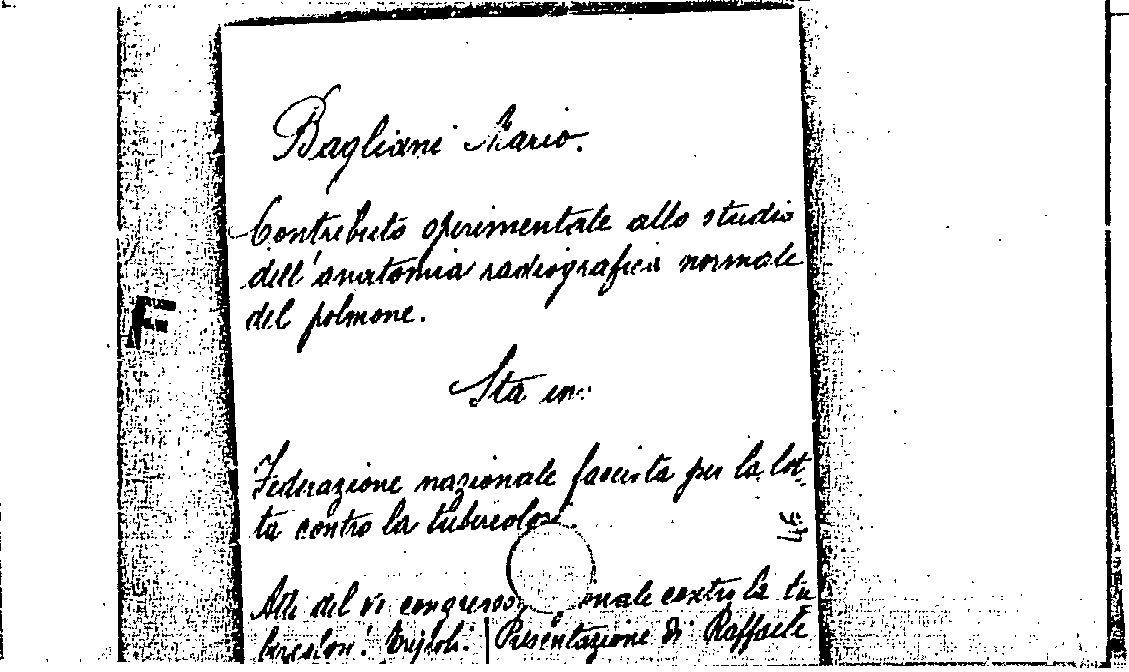 Bagliani Mario.
Contributo sperimentale allo studio
dell'anatomia radiografica normale
del polmone.
Sta in:
Federazione nazionale fascista per la lot-
ta contro la tubercolosi.
Atti del VI congresso nazionale contro la tu
bercolosi. Tripoli. Presentazione di Raffaele